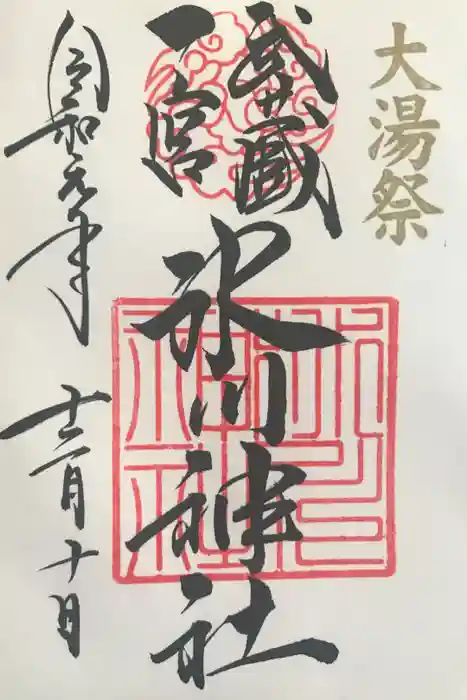 大湯祭
武蔵
一宮
氷川神社
令和元年
十二月十日
氷川神社